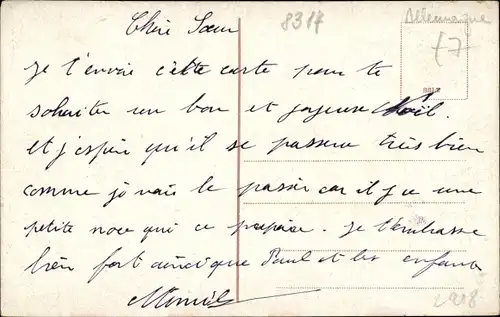 Chère Sœur
8317
Allemagne
Je t'envoie cette carte pour te
souhaiter un bon et joyeux Noël.
et j'espère qu'il se passera très bien
comme je vais le passer car il y a une
petite noce qui ce prépare. Je t'embrasse
bien fort ainsi que Paul et les enfants